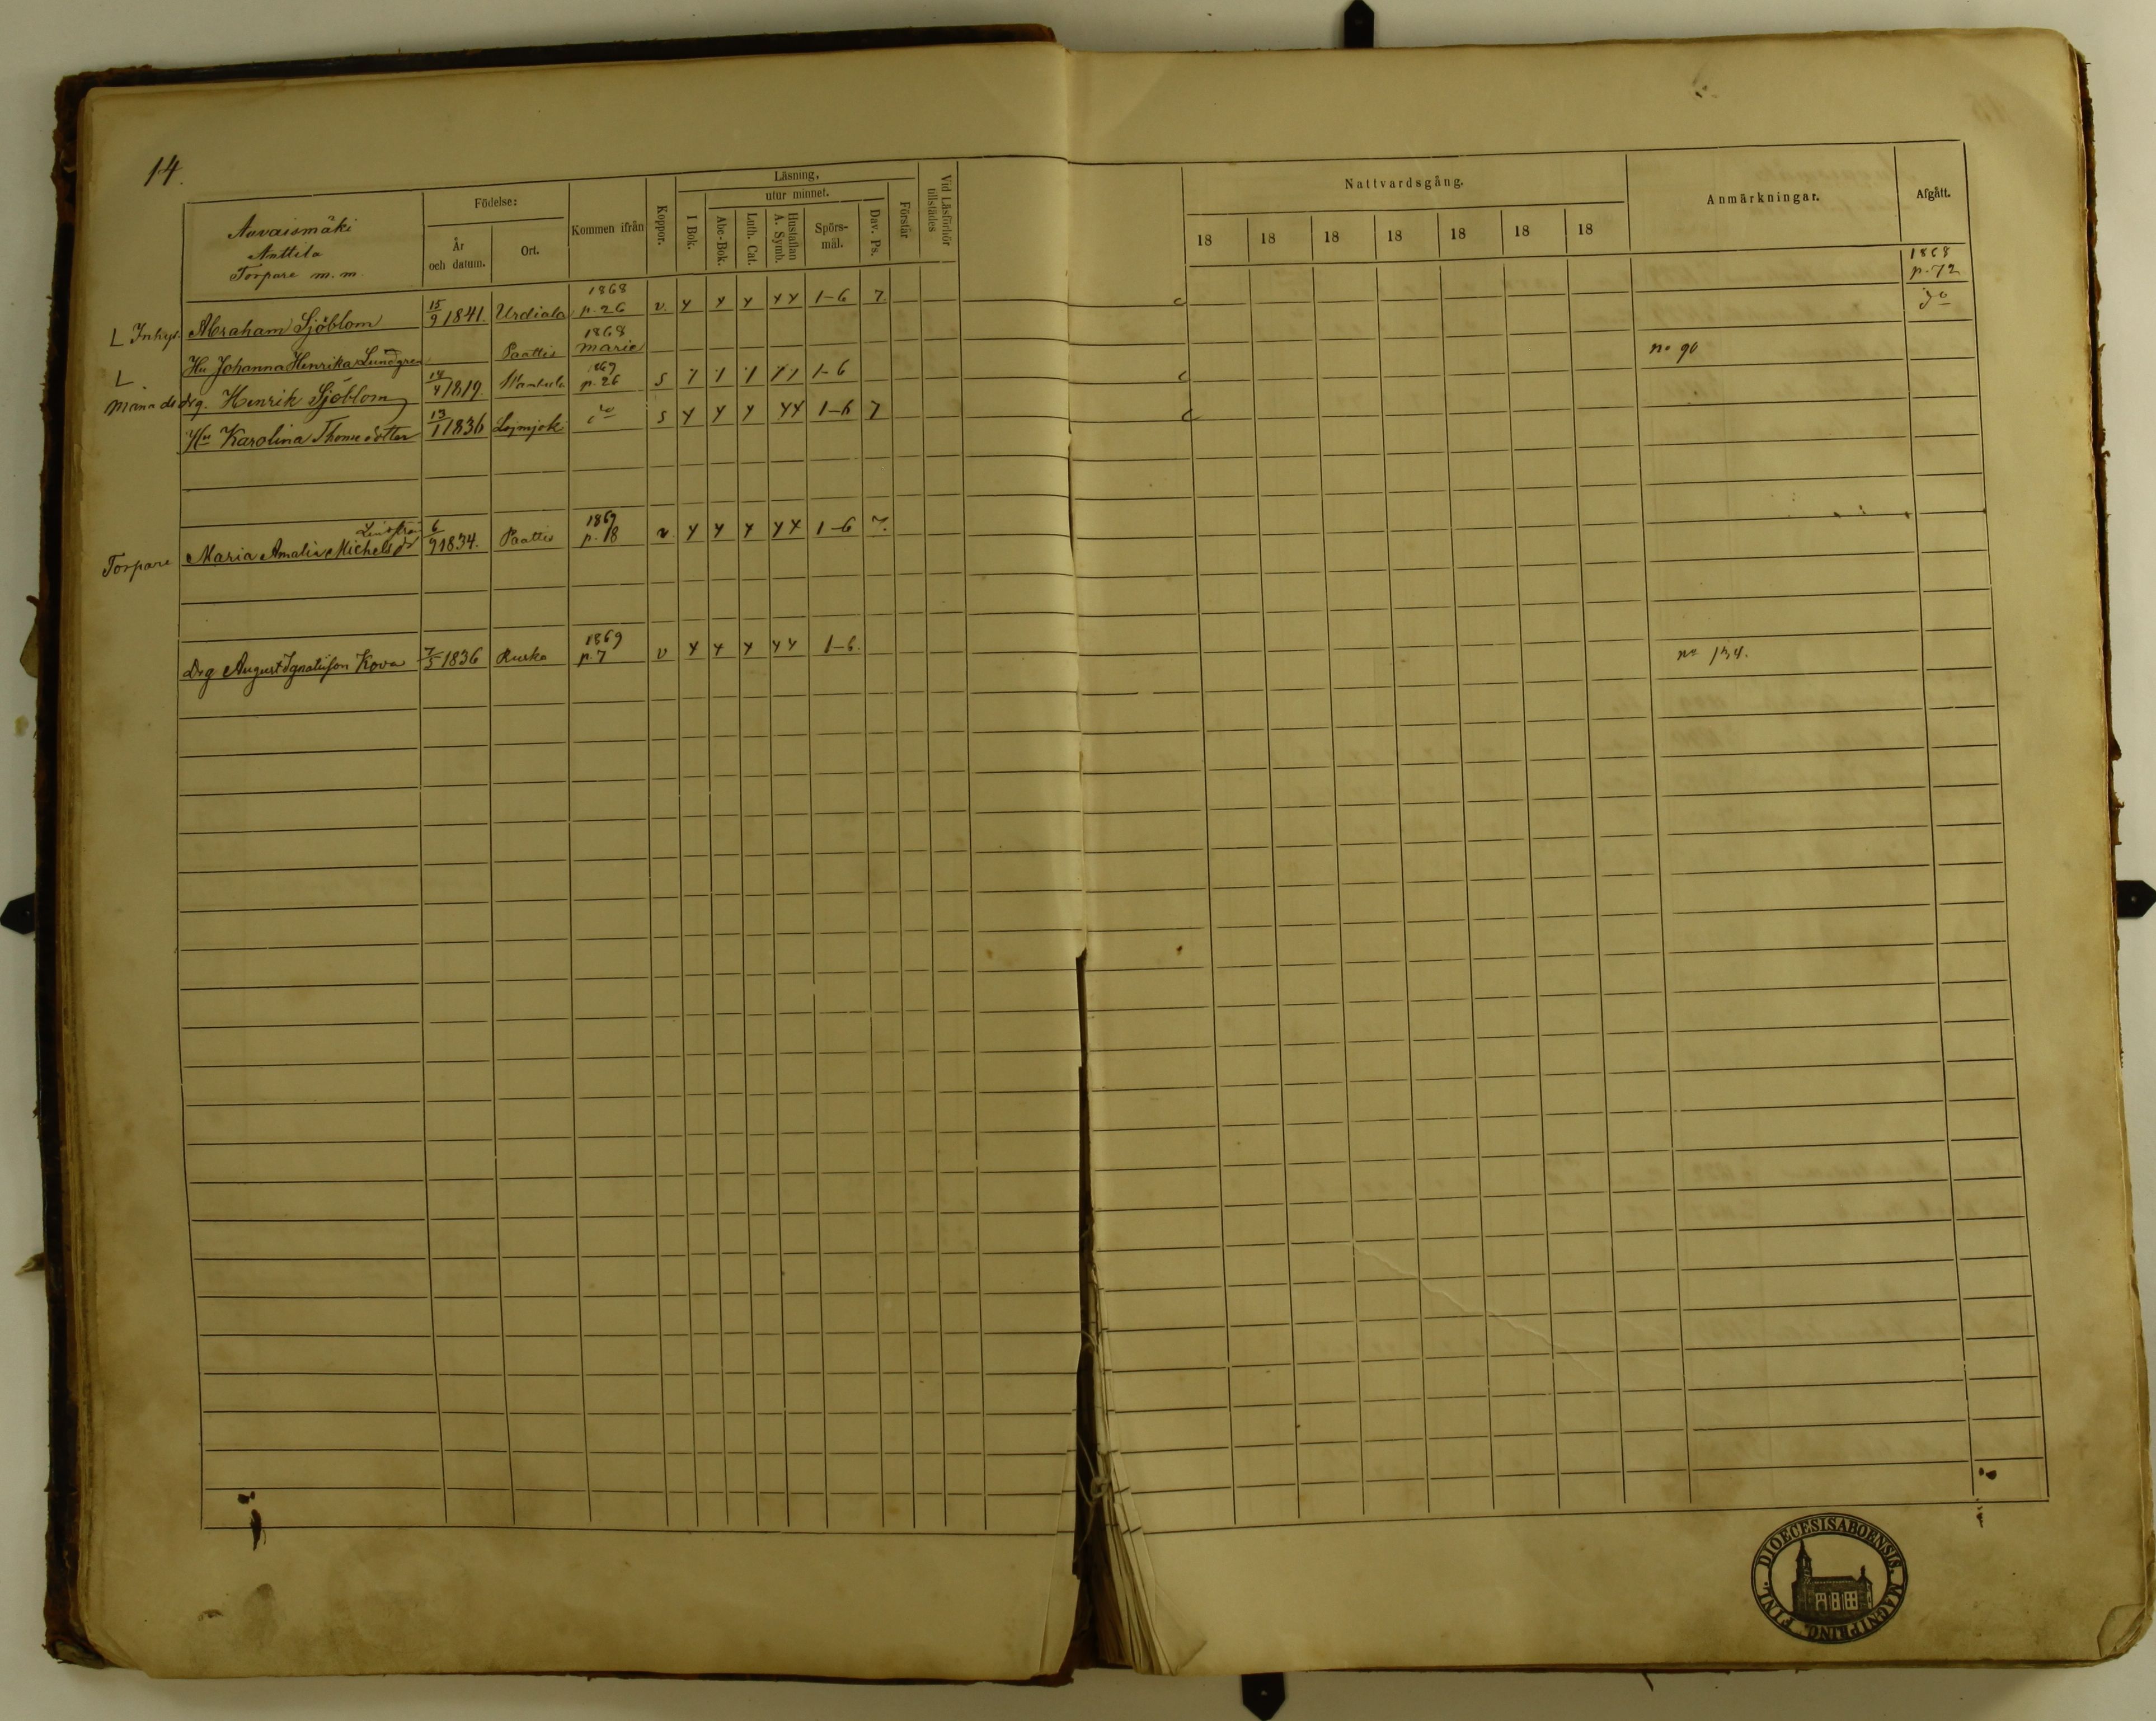 14.
Auvaismäki
Anttila
Torpare m. m.
Födelse:
År och datum.
Ort.
Kommen ifrån
Koppor.
Läsning,
utur minnet.
I Bok.
Abc-Bok.
Luth. Cat.
Hustaflan A. Symb.
Spörsmål.
Dav. Ps.
Förstår
Vid Läsförhör tillstädes
Nattvardsgång.
18 18 18 18 18 18 18
Anmärkningar.
Afgått.
L Inhys. Abraham Sjöblom 15/9 1841. Urdiala 1868 p. 26 v. y y y y y 1-6 7 c 1868 p. 72
L Hu Johanna Henrika Lundgren Paattis 1868 Marie no 90 do
Måna de drg. Henrik Sjöblom 14/4 1819. 1869 p. 26 s 1-6 c
Hu Karolina Thomedotter 13/1 1836 Lojmjoki do s y y y y y 1-6 7 c
Torpare Maria Amalia Michelsdr 6/9 1834. Paattis 1869 p. 18 v. y y y y y 1-6 7.
Drg August Ignatiison Kova 7/5 1836 Ruska 1869 p. 7 v y y y y y 1-6. no 134.
FINL. DIOECESIS ABOENSIS. MAGNI PRINC.